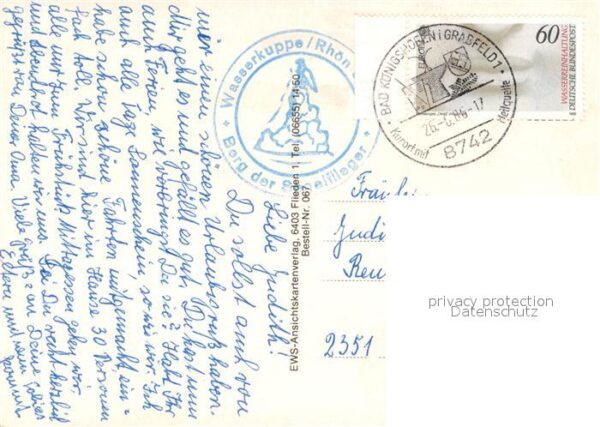 Liebe Judith!
Du sollst auch von
mir einen schönen Urlaubsgruß haben.
Mir geht und gefällt es gut. Du hast nun
auch Ferien, wie verbringst Du sie? Habt Ihr
auch alle Tage Sonnenschein, so wie wir. Ich
habe schon schöne Fahrten mitgemacht, ein-
fach toll. Wir sind hier im Hause 30 Personen
alle zum Frühstück Mittagessen gehen wir
und Abendbrot haben wir nun. Sei Du recht herzlich
gegrüßt von Deiner Oma. Viele Grüße an Deine lieben
Eltern und
EWS-Ansichtskartenverlag, 6403 Flieden 1, Tel. (06655) 1450
Bestell-Nr. 067
Wasserkuppe/Rhön
Berg der Segelflieger
BAD KÖNIGSHOFEN i GRABFELD 1
Heilquelle
Kurort mit
-17
8742
60
WASSERREINHALTUNG
DEUTSCHE BUNDESPOST
Fräulein
Judi
2351
privacy protection
Datenschutz